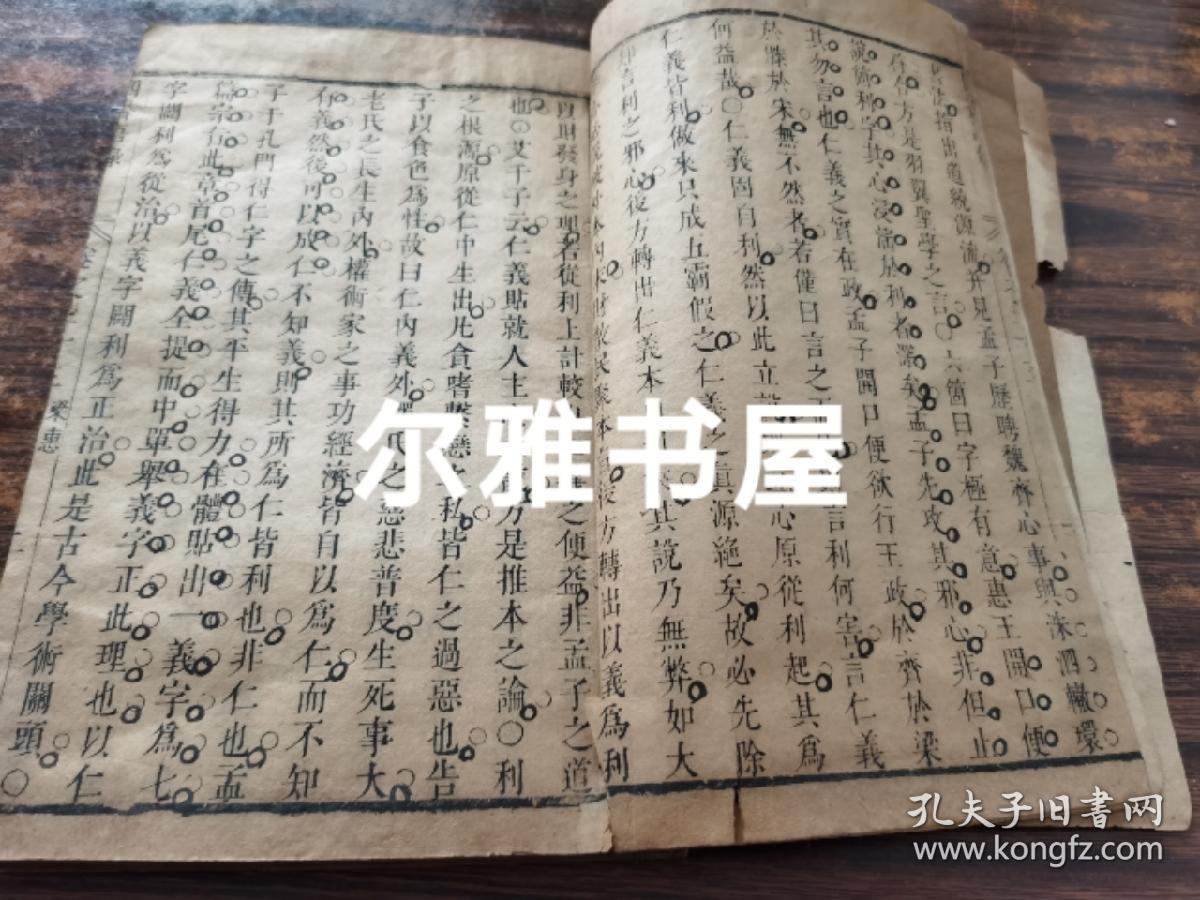 指出道統源流并見孟子歷聘魏齊心事與洙泗轍環
方是羽翼聖學之言○六箇曰字極有意惠王開口便
說箇利字其心浸淫於利者深矣孟子先攻其邪心非但止
其勿言也仁義之實在政孟子開口便欲行王政於齊於梁
於滕於宋無不然者若僅曰言之
言利何害言仁義
何益哉○仁義固自利然以此立
心原從利起其為
仁義皆利做來只成五霸假之仁義之真源絕矣故必先除
却言利之邪心後方轉出仁義本
其說乃無弊如大
後方轉出以義為利
以財發身之理若從利上計較
之便益非孟子之道
也○艾千子云仁義貼就人主
方是推本之論○利
之根源原從仁中生出凡貪嗜繫戀之私皆仁之過惡也告
子以食色為性故曰仁內義外
氏之慈悲普度生死事大
老氏之長生內外權術家之事功經濟皆自以為仁而不知
有義然後可以成仁不知義則其所為仁皆利也非仁也孟
子于孔門得仁字之傳其平生得力在體貼出一義字為七
篇宗旨此章首尾仁義全提而中單舉義字正此理也以仁
字闢利為從治以義字闢利為正治此是古今學術關頭○
梁惠
尔雅书屋
孔夫子旧书网
www.kongfz.com